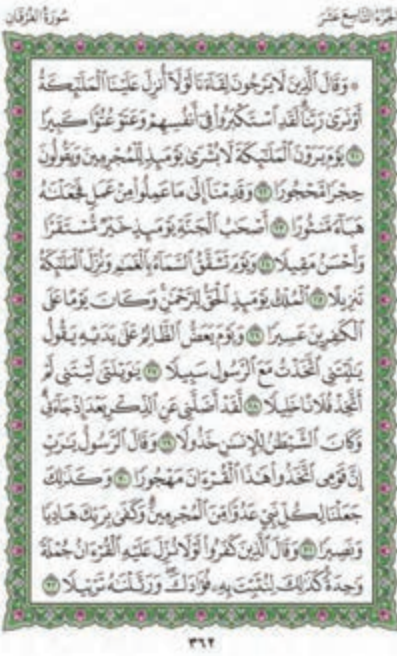 الجزء التاسع عشر
سورة الفرقان
۞ وَقَالَ ٱلَّذِينَ لَا يَرْجُونَ لِقَآءَنَا لَوْلَآ أُنزِلَ عَلَيْنَا ٱلْمَلَٰٓئِكَةُ
أَوْ نَرَىٰ رَبَّنَا لَقَدِ ٱسْتَكْبَرُوا۟ فِىٓ أَنفُسِهِمْ وَعَتَوْ عُتُوًّا كَبِيرًا
٢١ يَوْمَ يَرَوْنَ ٱلْمَلَٰٓئِكَةَ لَا بُشْرَىٰ يَوْمَئِذٍ لِّلْمُجْرِمِينَ وَيَقُولُونَ
حِجْرًا مَّحْجُورًا ٢٢ وَقَدِمْنَآ إِلَىٰ مَا عَمِلُوا۟ مِنْ عَمَلٍ فَجَعَلْنَٰهُ
هَبَآءً مَّنثُورًا ٢٣ أَصْحَٰبُ ٱلْجَنَّةِ يَوْمَئِذٍ خَيْرٌ مُّسْتَقَرًّا
وَأَحْسَنُ مَقِيلًا ٢٤ وَيَوْمَ تَشَقَّقُ ٱلسَّمَآءُ بِٱلْغَمَٰمِ وَنُزِّلَ ٱلْمَلَٰٓئِكَةُ
تَنزِيلًا ٢٥ ٱلْمُلْكُ يَوْمَئِذٍ ٱلْحَقُّ لِلرَّحْمَٰنِ وَكَانَ يَوْمًا عَلَى
ٱلْكَٰفِرِينَ عَسِيرًا ٢٦ وَيَوْمَ يَعَضُّ ٱلظَّالِمُ عَلَىٰ يَدَيْهِ يَقُولُ
يَٰلَيْتَنِى ٱتَّخَذْتُ مَعَ ٱلرَّسُولِ سَبِيلًا ٢٧ يَٰوَيْلَتَىٰ لَيْتَنِى لَمْ
أَتَّخِذْ فُلَانًا خَلِيلًا ٢٨ لَّقَدْ أَضَلَّنِى عَنِ ٱلذِّكْرِ بَعْدَ إِذْ جَآءَنِى
وَكَانَ ٱلشَّيْطَٰنُ لِلْإِنسَٰنِ خَذُولًا ٢٩ وَقَالَ ٱلرَّسُولُ يَٰرَبِّ
إِنَّ قَوْمِى ٱتَّخَذُوا۟ هَٰذَا ٱلْقُرْءَانَ مَهْجُورًا ٣٠ وَكَذَٰلِكَ
جَعَلْنَا لِكُلِّ نَبِىٍّ عَدُوًّا مِّنَ ٱلْمُجْرِمِينَ وَكَفَىٰ بِرَبِّكَ هَادِيًا
وَنَصِيرًا ٣١ وَقَالَ ٱلَّذِينَ كَفَرُوا۟ لَوْلَا نُزِّلَ عَلَيْهِ ٱلْقُرْءَانُ جُمْلَةً
وَٰحِدَةً كَذَٰلِكَ لِنُثَبِّتَ بِهِۦ فُؤَادَكَ وَرَتَّلْنَٰهُ تَرْتِيلًا ٣٢
٣٦٢